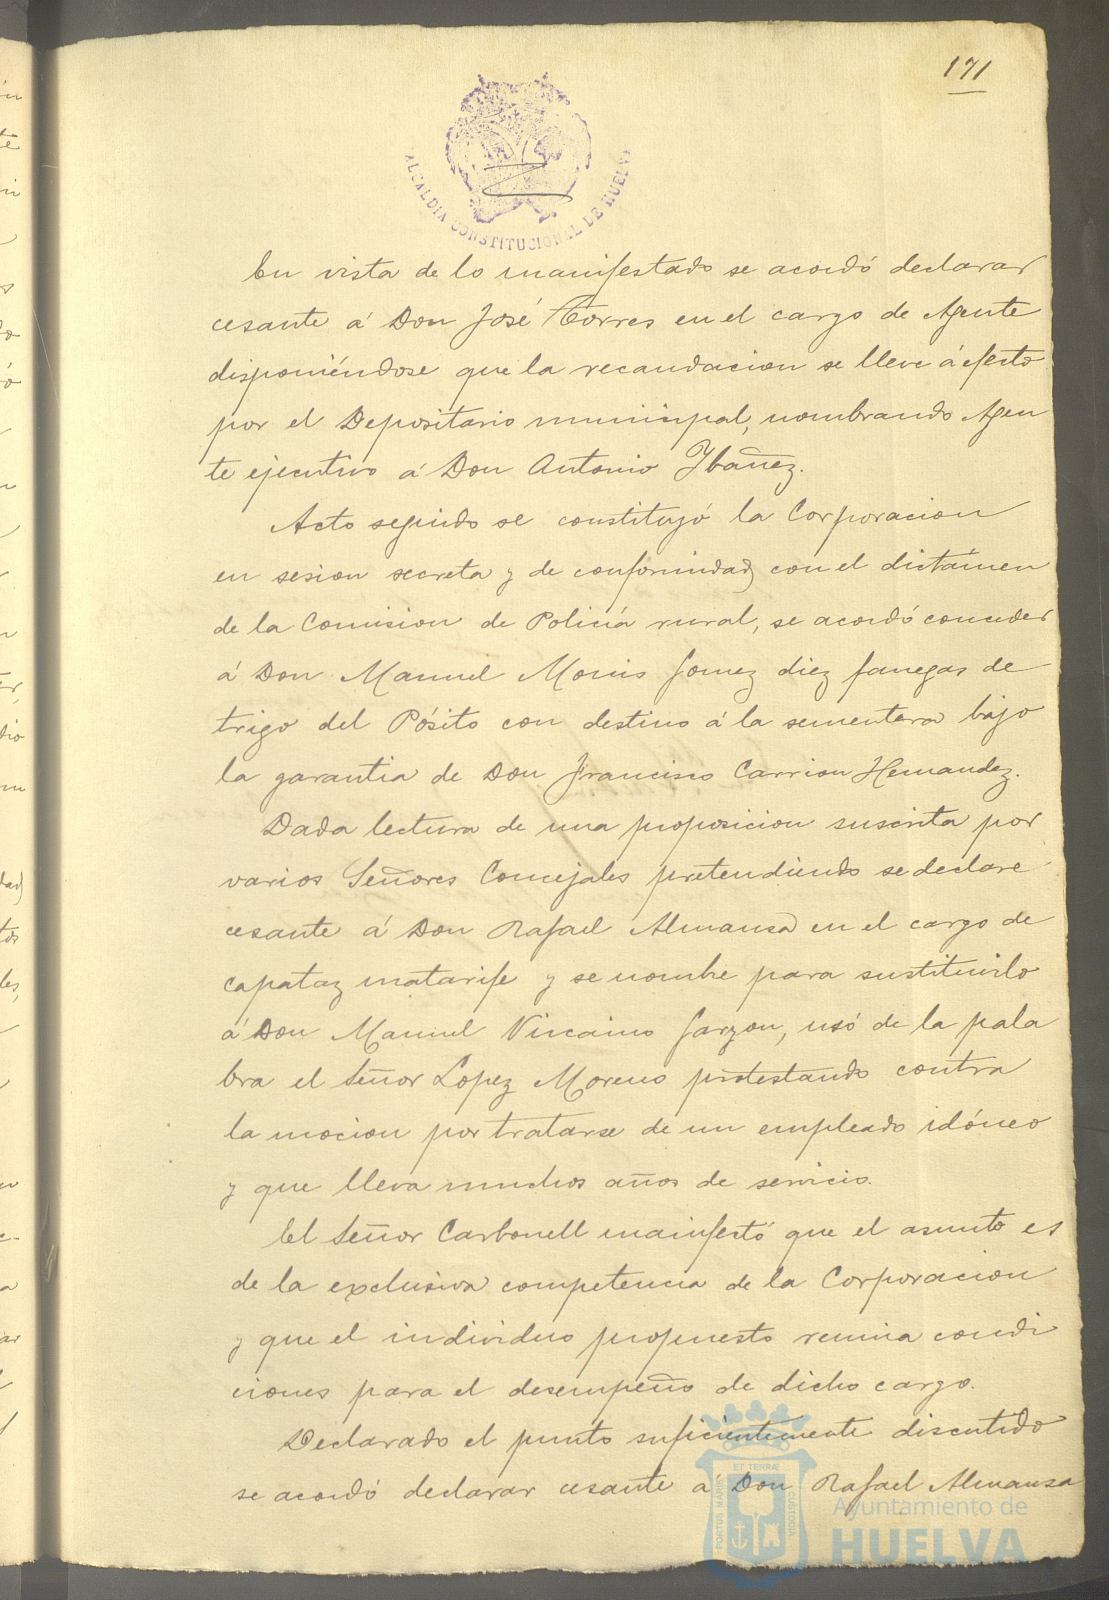 171
ALCALDIA CONSTITUCIONAL DE HUELVA
En vista de lo manifestado se acordó declarar
cesante á Don José Torres en el cargo de Agente
disponiéndose que la recaudacion se lleve á efecto
por el Depositario municipal, nombrando Agen
te ejecutivo á Don Antonio Ybañez.
Acto seguido se constituyó la Corporacion
en sesion secreta y de conformidad con el dictámen
de la Comision de Policía rural, se acordó conceder
á Don Manuel Gomez diez fanegas de
trigo del Pósito con destino á la sementera bajo
la garantia de Don Francisco Carrion Hernandez.
Dada lectura de una proposicion suscrita por
varios Señores Concejales pretendiendo se declare
cesante á Don Rafael Almansa en el cargo de
capataz matarife y se nombre para sustituirlo
á Don Manuel Vizcaino Garzon, usó de la pala
bra el Señor Lopez Moreno protestando contra
la mocion por tratarse de un empleado idóneo
y que lleva muchos años de servicio.
El Señor Carbonell manifestó que el asunto es
de la exclusiva competencia de la Corporacion
y que el individuo propuesto reunia condi
ciones para el desempeño de dicho cargo.
Declarado el punto suficientemente discutido
se acordó declarar cesante á Don Rafael Almansa
PORTUS MARIS ET TERRÆ CUSTODIA
Ayuntamiento de
HUELVA